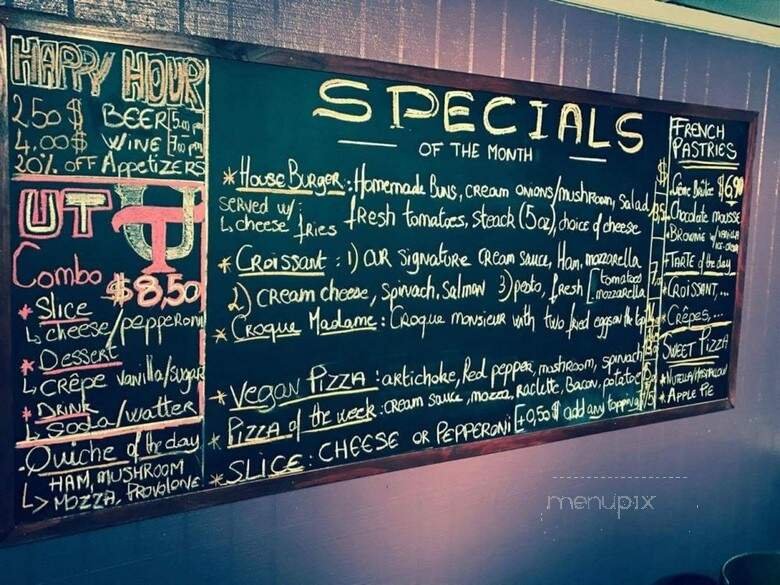 HAPPY HOUR
2.50 $ BEER 5.00 pm
4.00$ WINE 7.00 pm
20% OFF Appetizers
UT UT
Combo $8,50
* Slice
↳ cheese/pepperoni
* Dessert
↳ Crêpe vanilla/sugar
* DRINK
↳ Soda/watter
Quiche of the day
HAM, MUSHROOM
↳> MOZZA, PROVOLONE
SPECIALS
OF THE MONTH
* House Burger: Homemade Buns, cream onions/mushroom, salad,
served w/ fresh tomatoes, steack (5oz), choice of cheese
↳ cheese fries
* Croissant: 1) our signature cream sauce, Ham, mozzarella
2) cream cheese, Spinach, Salmon 3) pesto, fresh [tomatoes mozzarella
* Croque Madame: Croque monsieur with two fried eggs on the top
* Vegan Pizza: artichoke, Red pepper, mushroom, spinach
* Pizza of the week: cream sauce, mozza, raclette, Bacon, potatoe
* SLICE: CHEESE OR PEPPERONI [+0,50$ add any topping
FRENCH
PASTRIES
Crème Brûlée $6,90
Chocolate mousse
BROWNIE w/ vanilla ice-cream
TARTE of the day
CROISSANT,...
* Crêpes,...
SWEET PIZZA
* NUTELLA/MARSHMALLOW
* APPLE PIE
menupix